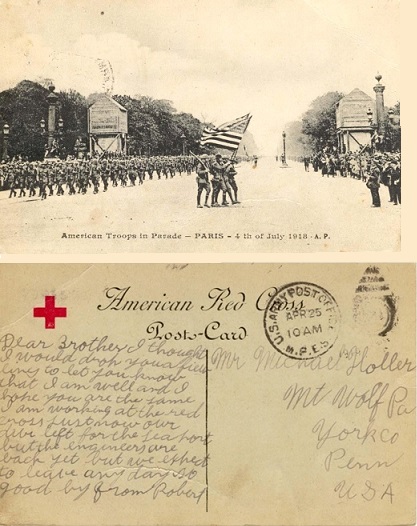 American Troops in Parade — PARIS — 4 th of July 1918 - A. P.
American Red Cross
Post-Card
U.S. ARMY POST OFFICE
APR 25
10 AM
M.P.E.S.
Dear Brother I thought
I would drop you a few
lines to let you know
that I am well and I
hope you are the same
I am working at the red
cross just now our
divi left for the sea port
but the engineers are
back yet but we exspect
to leave any day so
good by from Robert
Mr Michael Holler
Mt Wolf Pa
York co
Penn
USA